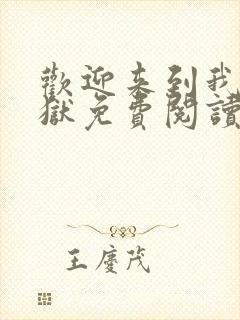 歡迎來到我
獄免費閱讀
王慶茂